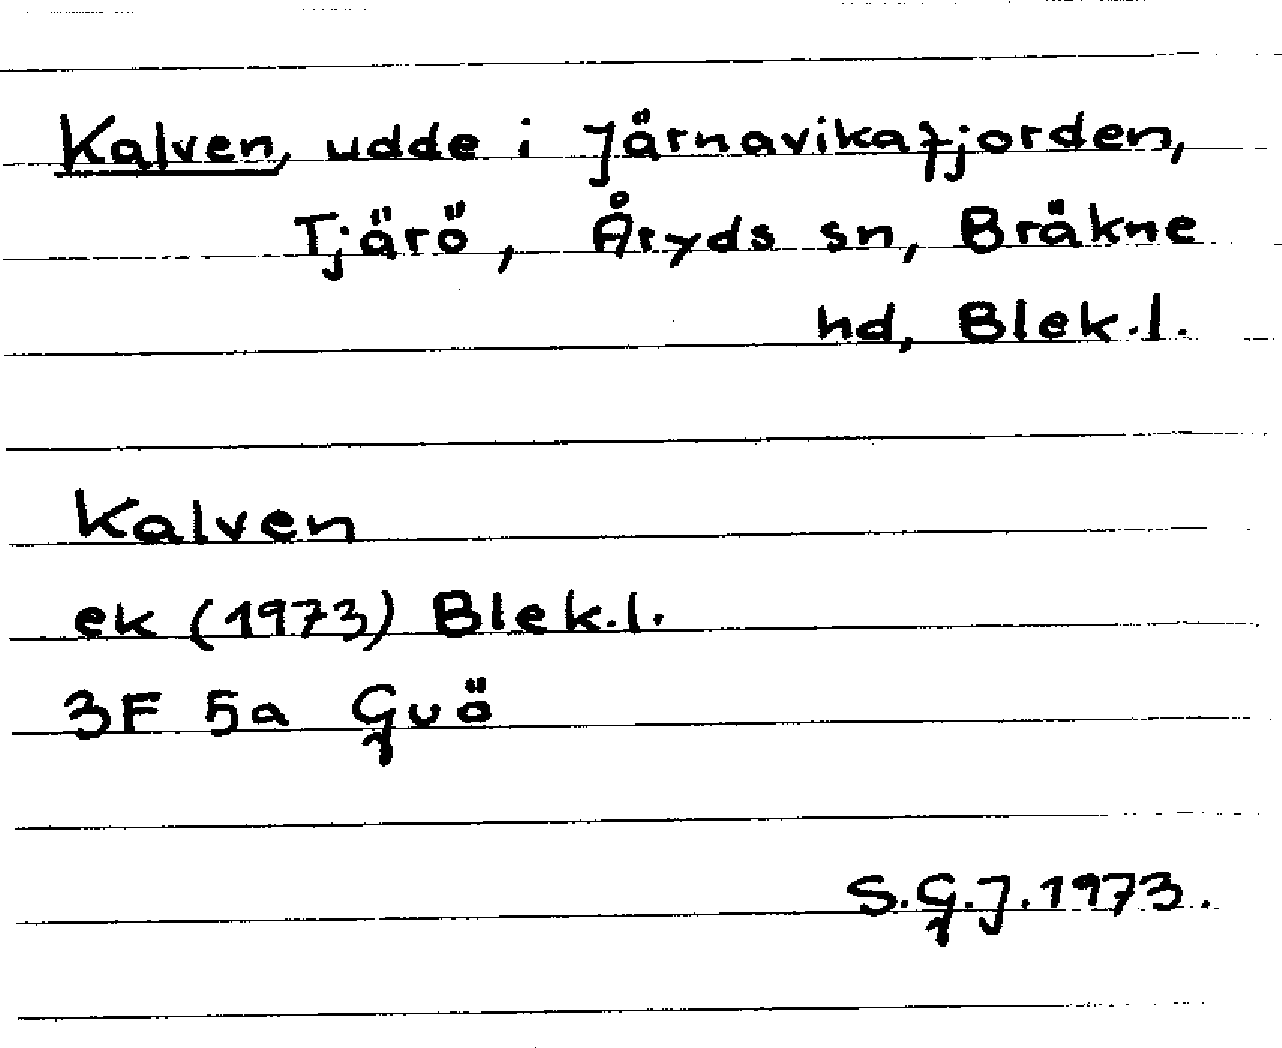 Kalven, udde i Jårnavikafjorden,
Tjärö, Åryds sn, Bräkne
hd, Blek.l.
Kalven
ek (1973) Blek.l.
3F 5a Guö
S.G.J. 1973.